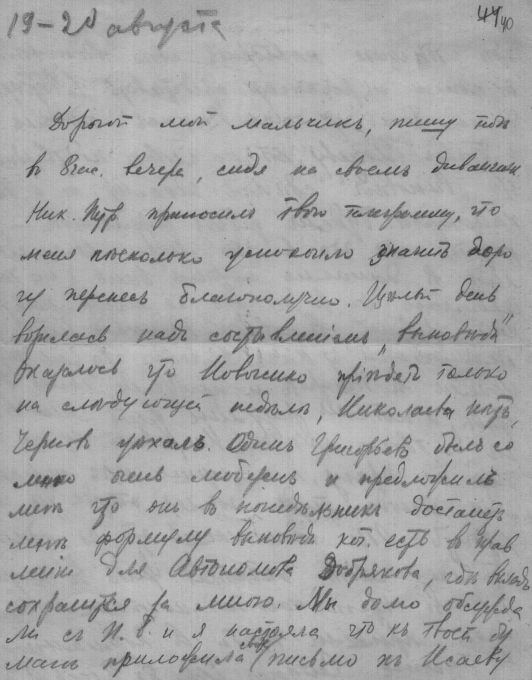 19–20 августа
44 40
Дорогой мой мальчикъ, пишу тебѣ
в 8 час. вечера, сидя на своемъ диванчикѣ
Ник. Птр. приносилъ твою телеграмму, что
меня нѣсколько успокоило значитъ доро
гу перенесъ благополучно. Цѣлый день
возилась надъ составленіемъ „выводъ"
оказалось что Новенико пріѣдетъ только
на слѣдующей недѣлѣ, Николаева нѣтъ,
Черновъ уѣхалъ. Одинъ Григорьевъ былъ со
мною очень любезенъ и предложилъ
мнѣ что онъ в понедѣльникъ достанетъ
мнѣ формулу вывода кот. есть в прав
леніи для Автономова Добрякова, гдѣ вкладъ
сохранится за мною. Мы долго обсужда
ли съ Н. В. и я настояла что къ твоей бу
магѣ приложила свое письмо къ Исаеву